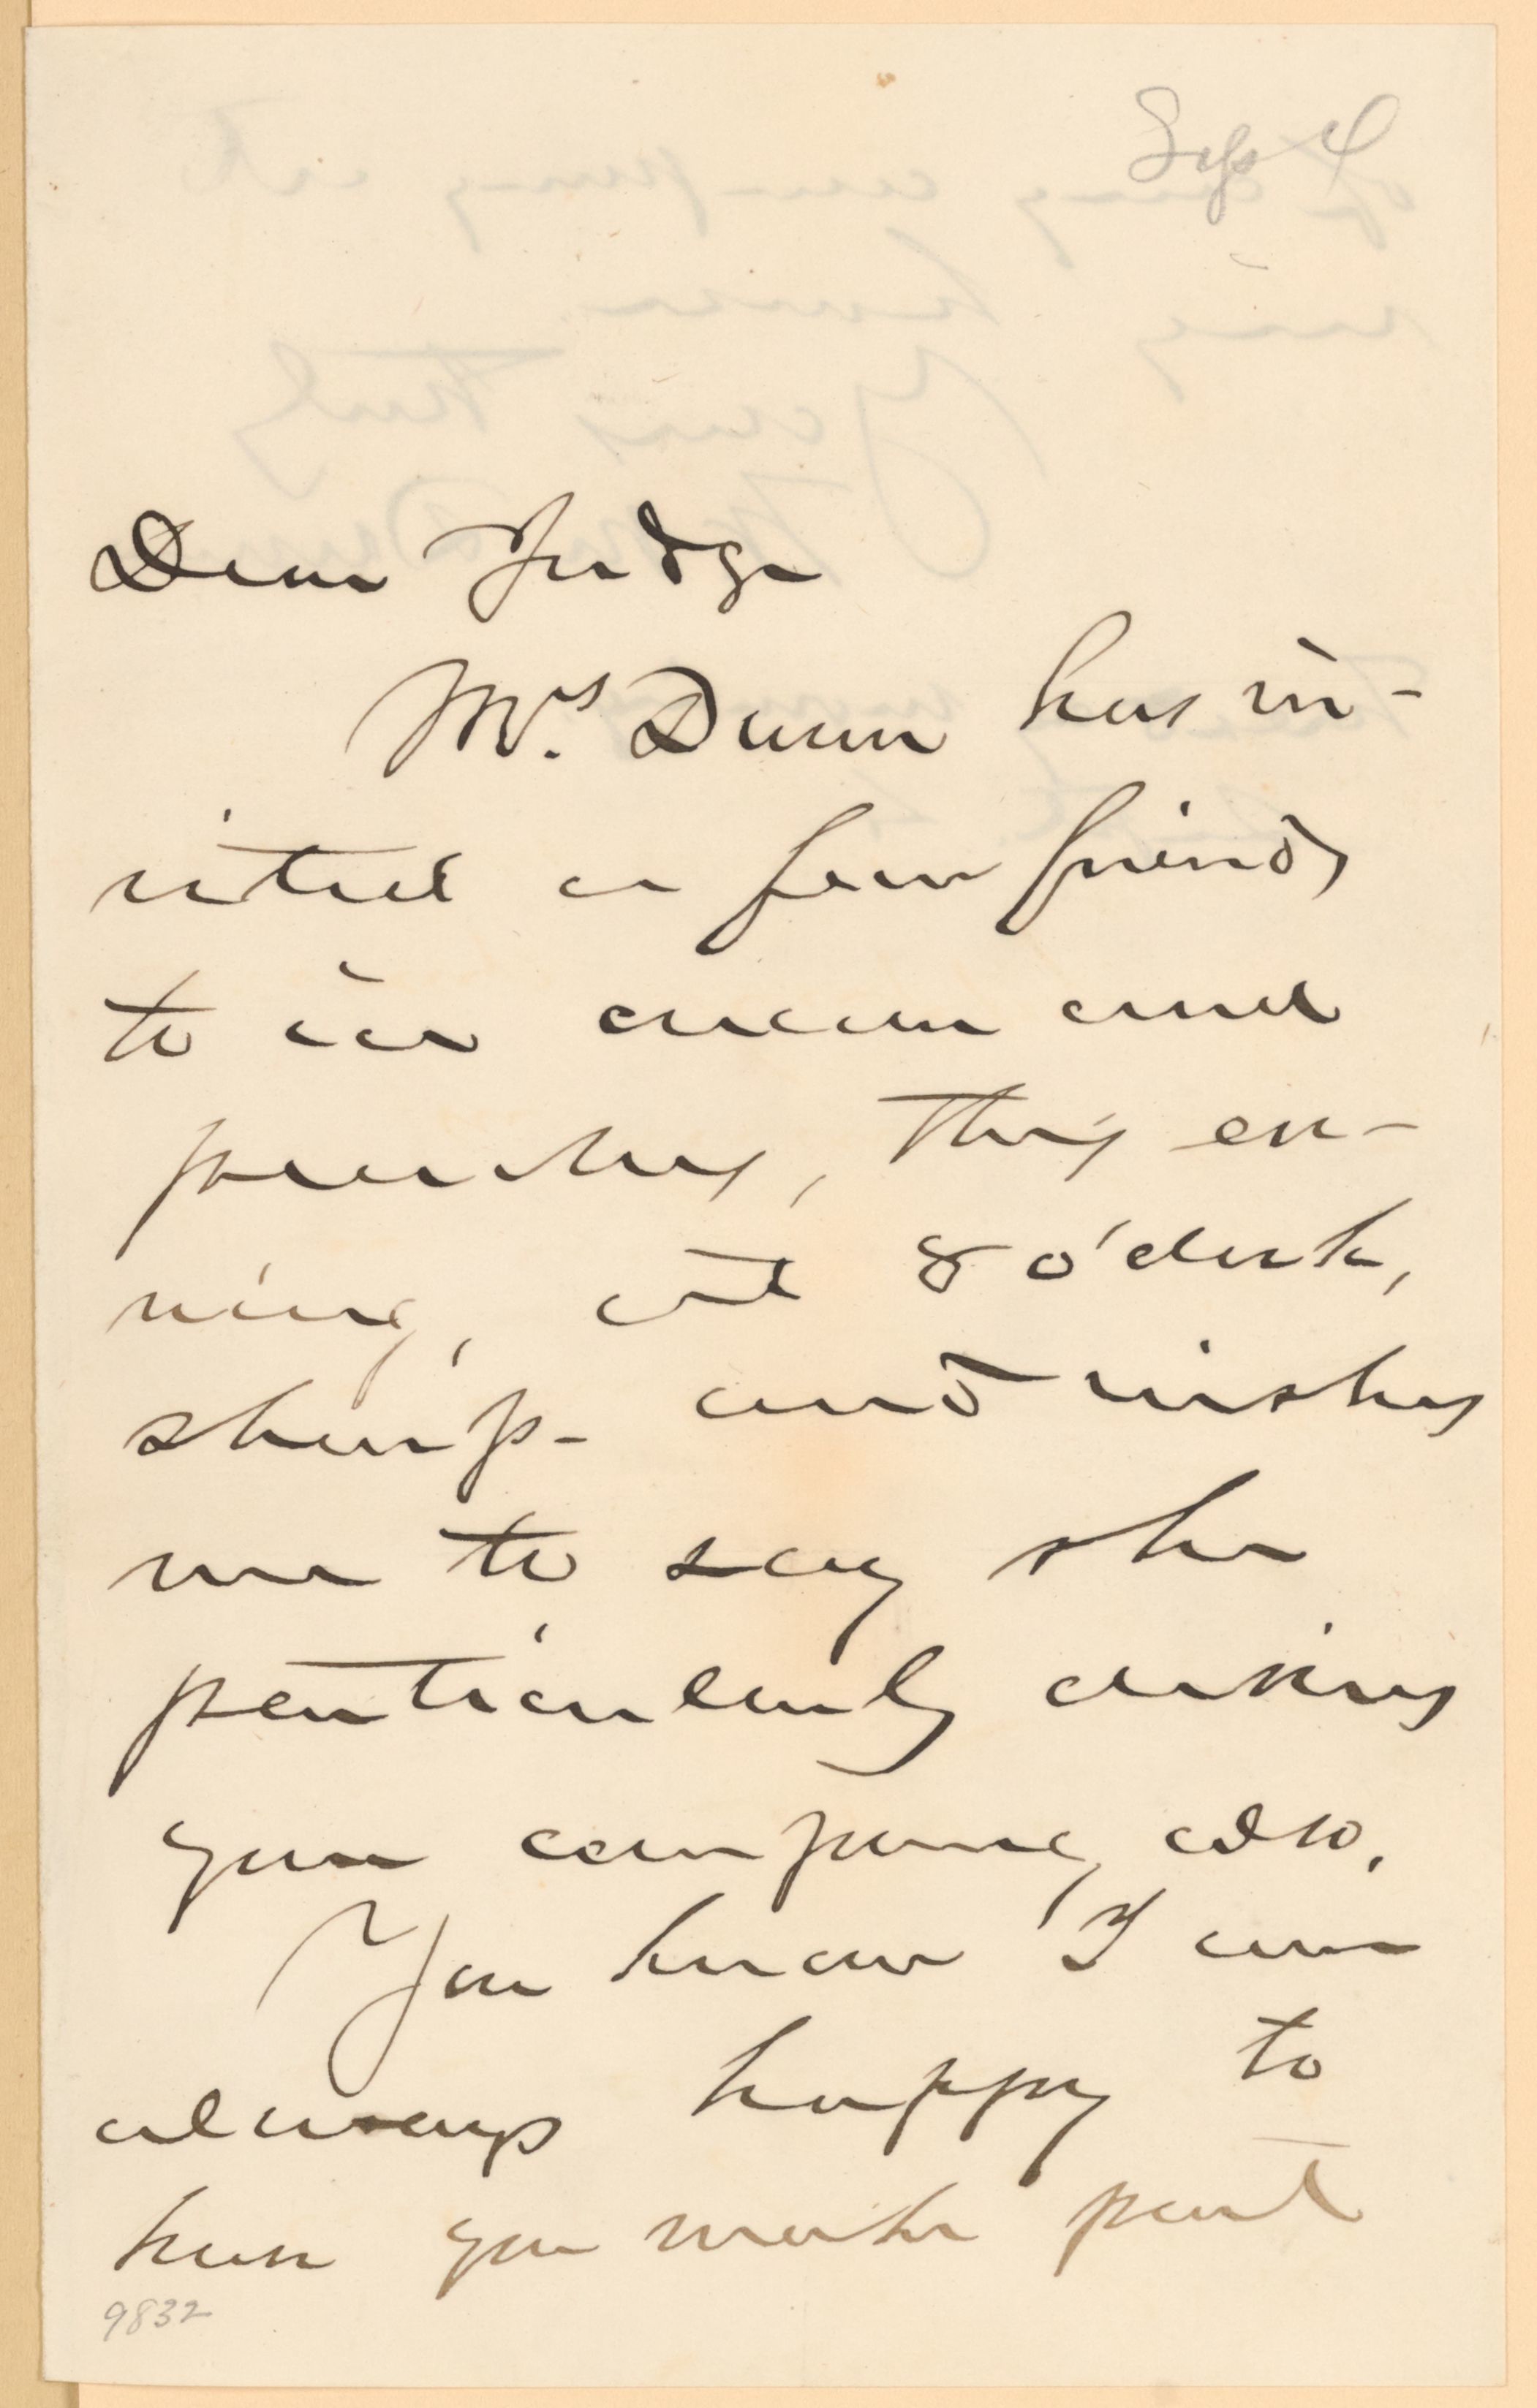 Sept 4
Dear Judge
Mrs. Dunn has in-
vited a few friends
to ice cream and
peaches, this eve-
ning, at 8 o'clock,
sharp - and wishes
me to say she
particularly desires
your company, also.
You know I am
always happy to
have you make part
9832